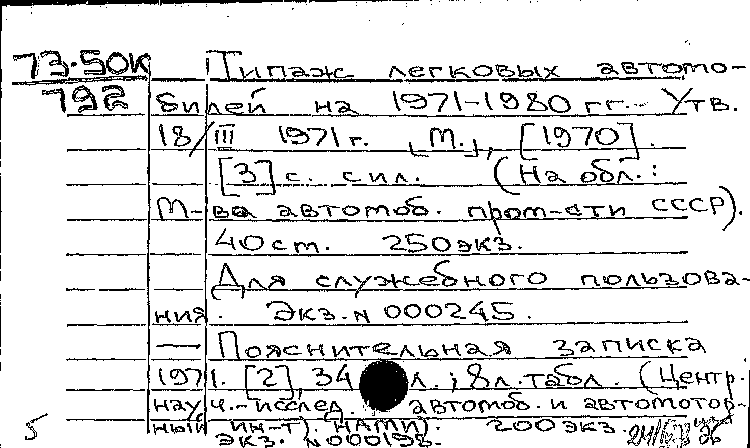 73-50к Типаж легковых автомо-
792 билей на 1971-1980 гг.- Утв.
18/III 1971 г. [М.], [1970].
[3] с. сил. (На обл.:
М-во автомоб. пром-сти СССР).
40 см. 250 экз.
Для служебного пользова-
ния. Экз. N 000245.
— Пояснительная записка
1971. [2], 34 л.; 8 л. табл. (Центр.
науч.-исслед. автомоб. и автомотор-
ный ин-т). НАМИ). 200 экз.
5 Экз. N 000198.